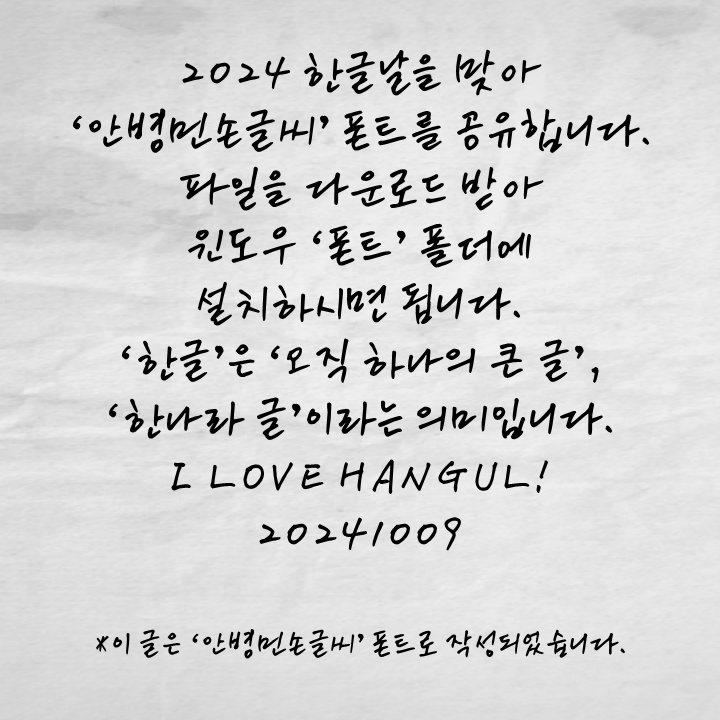 2024 한글날을 맞아
‘안병먼손글씨’ 폰트를 공유합니다.
파일을 다운로드 받아
윈도우 ‘폰트’ 폴더에
설치하시면 됩니다.
‘한글’은 ‘오직 하나의 큰 글’,
‘한나라 글’이라는 의미입니다.
I LOVE HANGUL!
20241009
*이 글은 ‘안병먼손글씨’ 폰트로 작성되었습니다.